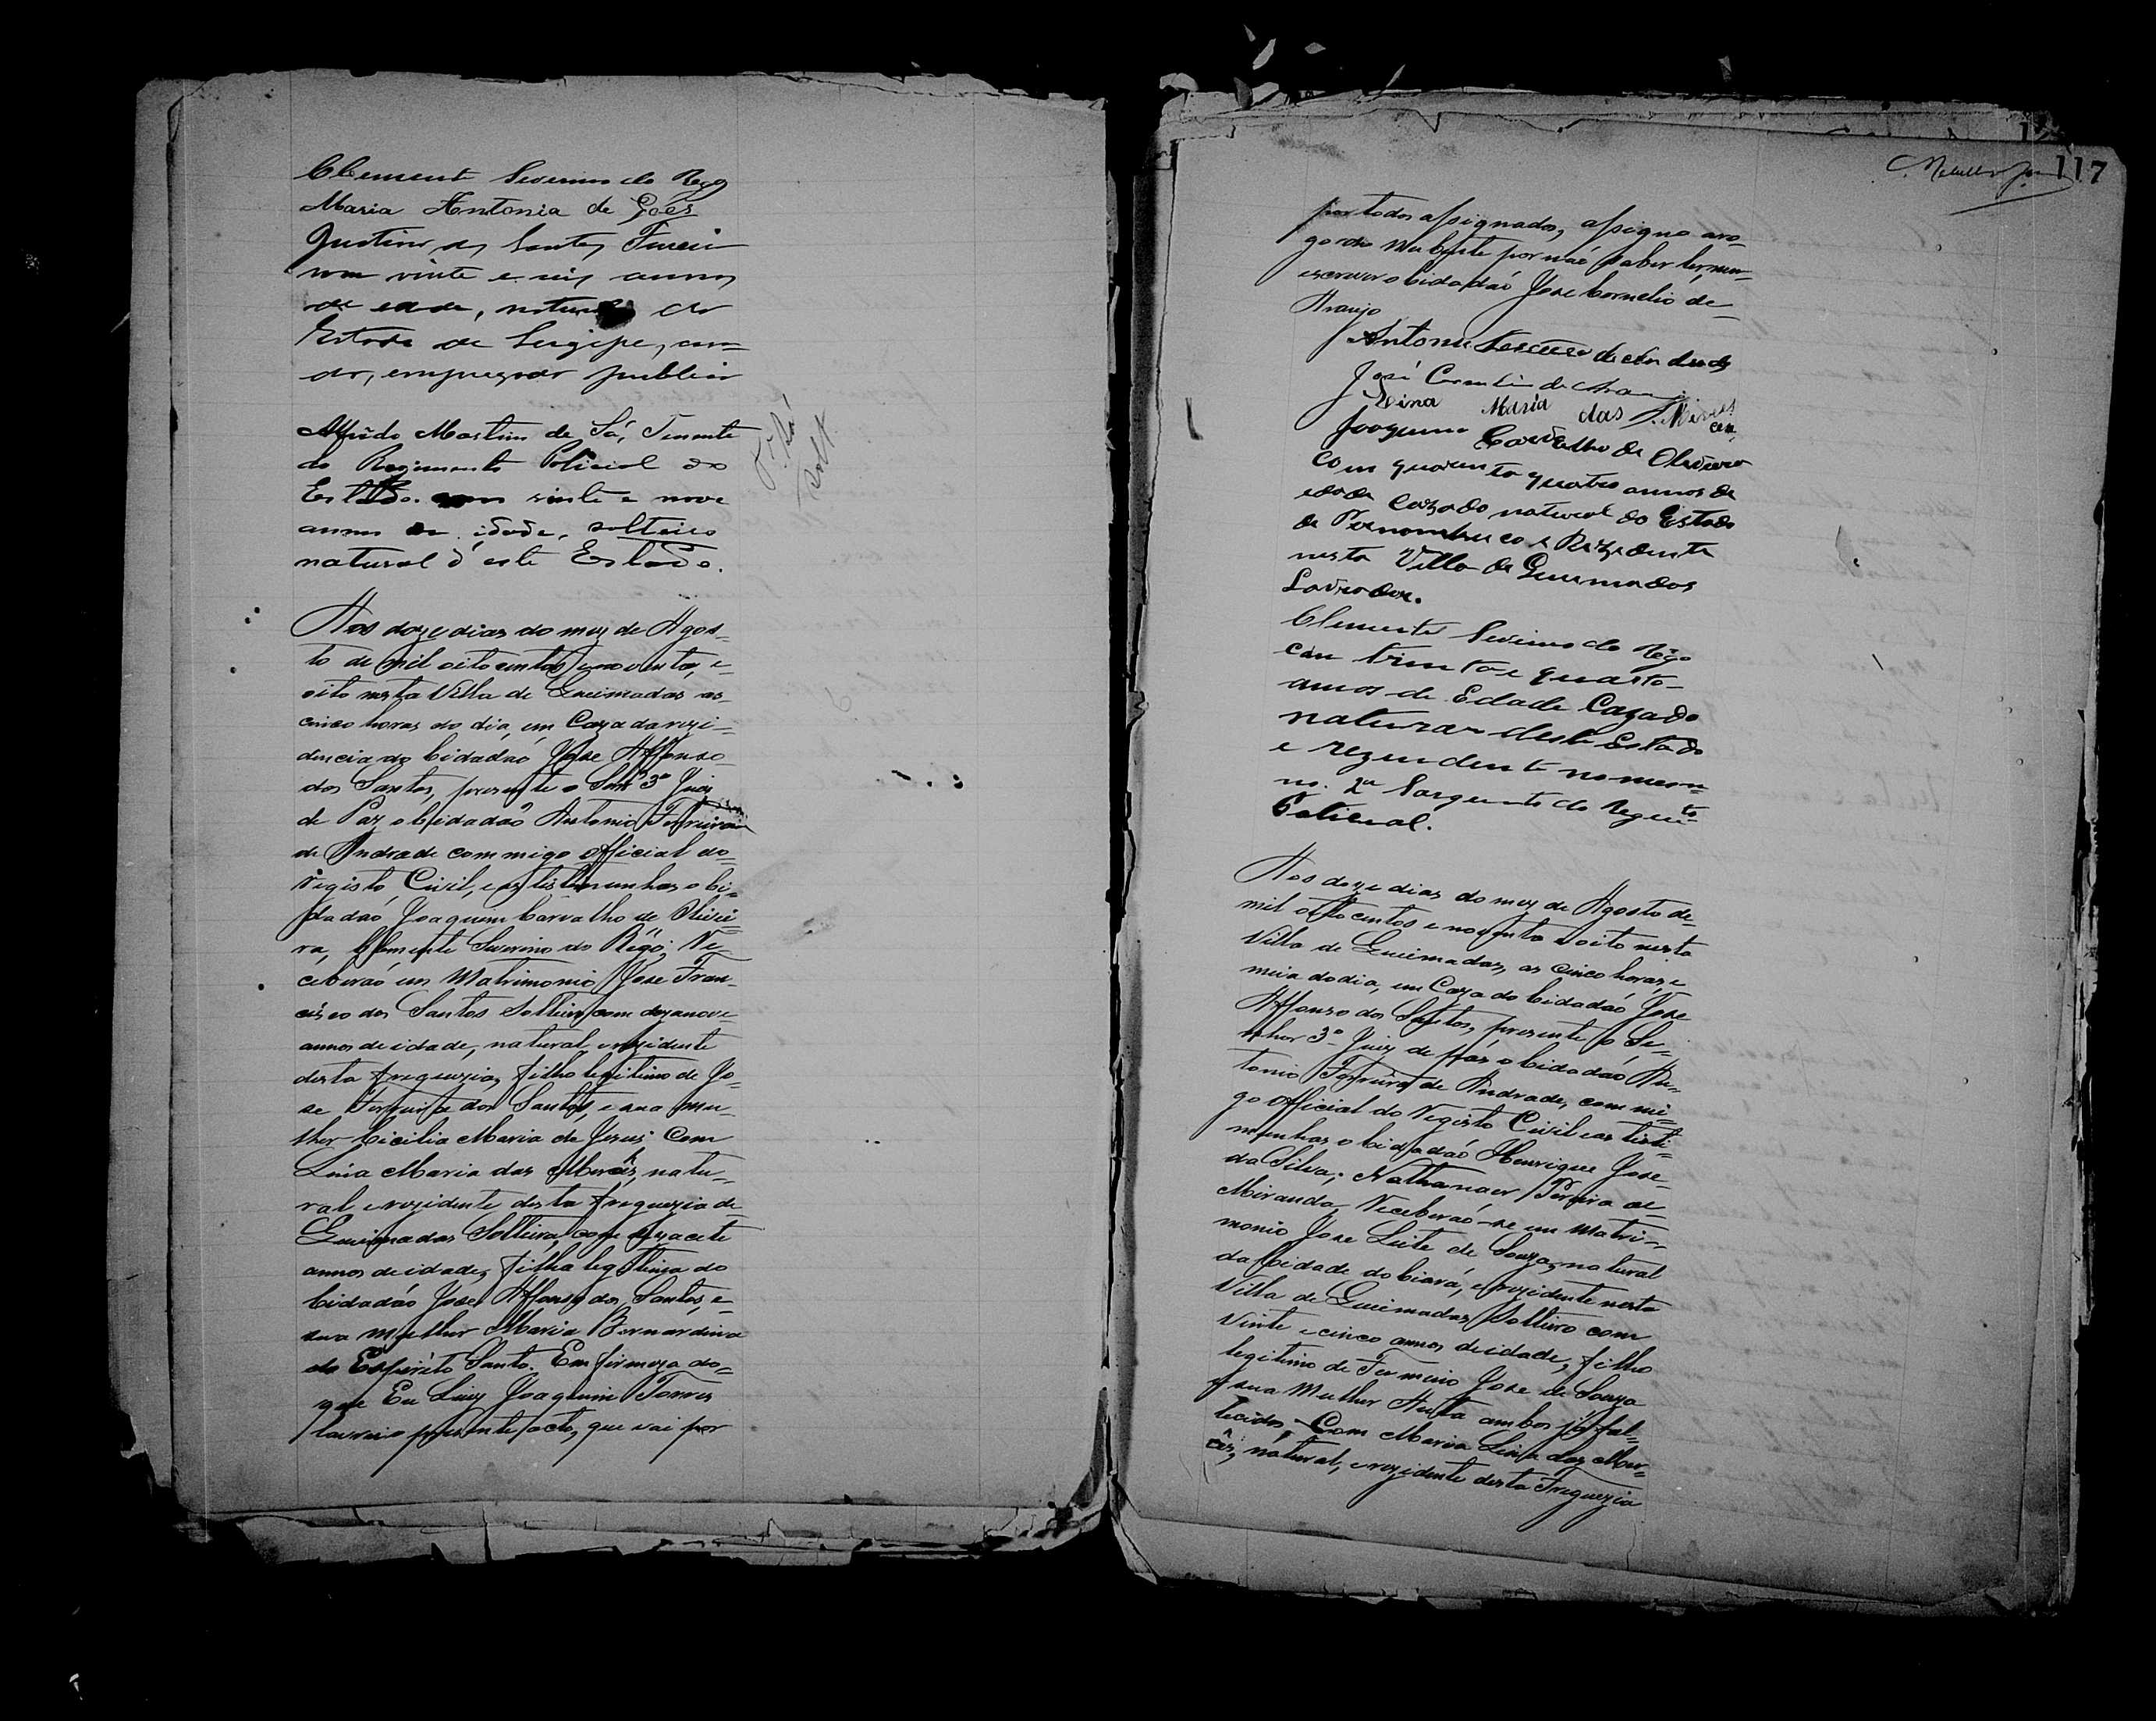 Clemente Severino do Rego
Maria Antonia de Góes
Justino dos Santos
com vinte e seis annos
de edade, natural do
Estado de Sergipe, casa-
do, empregado publico
Alfredo Martins de Sá, Tenente
do Regimento Policial do
Estado. com vinte e nove
annos de idade, solteiro
natural d'este Estado.
Aos doze dias do mez de Agos-
to de mil oito centos e noventa, e
oito nesta Villa de Queimadas as
cinco horas do dia, em Caza da rezi-
dencia do Cidadão Jose Affonso
dos Santos, presente o Snr 3º Juiz
de Paz o Cidadão Antonio Ferreira
de Andrade commigo official do
Registo Civil, e as testemunhas o Ci-
dadão Joaquim Carvalho de Olivei-
ra, Clemente Severino do Rêgo; Re-
ceberão em Matrimonio Jose Fran-
cisco dos Santos Solteiro, com dezanove
annos de idade, natural e rezidente
desta freguezia, filho legitimo de Jo-
se Ferreira dos Santos, e sua mu-
lher Cicilia Maria de Jesus; Com
Linia Maria das Mercês, natu-
ral e rezidente desta freguezia de
Queimadas Solteira, com dezacete
annos de idade, filha legitima do
Cidadão Jose Affonso dos Santos, e
sua mulher Maria Bernardina
do Espirito Santo. Em firmeza do
que Eu Luiz Joaquim Torres
lavrei o presente acto, que vai por
117
por todos assignados, assigno aro-
go do Nubente por não saber ler, nem
escrever o Cidadão Jose Cornelio de
Araujo
Antonio Ferreira de Andrade
José Cornelio de Araujo
Maria das Mercês
Joaquim Carvalho de Oliveira com
com quarenta quatro annos de
edade Cazado natural do Estado
de Pernambuco e Rezedente
nesta Villa de Queimadas
Lavrador.
Clemente Severino do Rêgo
com trinta e quatro
annos de Edade Cazado
natural deste Estado
e rezendente na mesm
2º Sargento do Regim.to
Policial.
Aos doze dias do mez de Agosto de
mil oito centos e noventa e oito nesta
Villa de Queimadas, as cinco horas e
meia do dia, em Caza do Cidadão Jose
Affonso dos Santos, presente o Se-
nhor 3º Juiz de páz o Cidadão An-
tonio Ferreira de Andrade, com mi-
go official do Registo Civil e as teste-
munhas o Cidadão Henrique Jose
da Silva; Nathanaer Pereira de
Miranda, Receberão-se em Matri-
monio Jose Leite de Souza, natural
da Cidade do Ciará, e rezidente nesta
Villa de Queimadas, Solteiro com
vinte e cinco annos de idade, filho
legitimo de Firmino Jose de Souza
e sua Mulher ambos já fal-
lecidos, Com Maria Linia das Mer-
cês, natural, e rezidente desta Freguezia